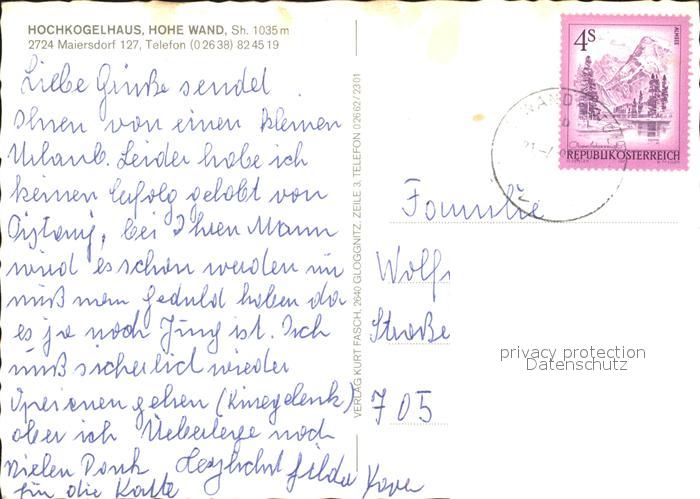 HOCHKOGELHAUS, HOHE WAND, Sh. 1035 m
2724 Maiersdorf 127, Telefon (0 26 38) 82 45 19
Liebe Grüße sendet
Ihnen von einen kleinen
Urlaub. Leider habe ich
keinen Erfolg gehabt von
bei Ihren Mann
wird es schon werden nur
muß man geduld haben da
es ja noch Jung ist. Ich
muß wieder
gehen (Kniegelenk)
aber ich Ueberlege noch
vielen Dank Herzlichst Hilda
für die Karte
VERLAG KURT FASCH, 2640 GLOGGNITZ, ZEILE 3, TELEFON 02662/2301
4S
ALMSEE
REPUBLIK ÖSTERREICH
Familie
Wolfs
Straße
705
privacy protection
Datenschutz